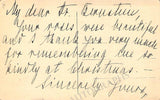 My dear Dr. Bernstein,
Your roses were beautiful
and I thank you very much
for remembering me so
kindly at Christmas.—
Sincerely Yours,